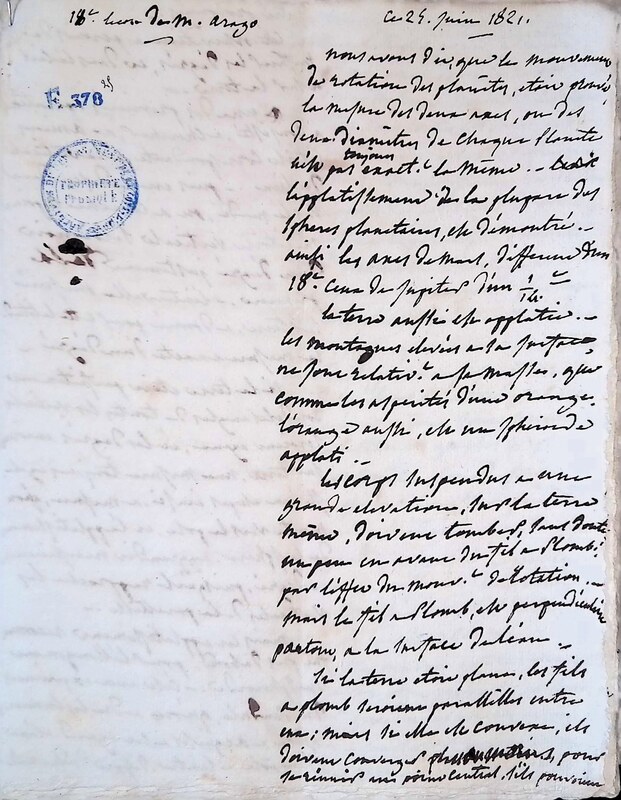 18e. lecon De M. arago
Ce 25. juin 1821.
25
F. 378
PROPRIÉTÉ
PUBLIQUE
nous avons dit, que le mouvement
De rotation Des planètes, etoit prouvé
la mesure des deux axes, ou des
Deux Diamètres De Chaque Planète
n'est pas toujours exact.t la même. -
l'applatissement De la plupart des
Spheres planetaires, est Démontré. -
ainsi les axes de mars, diffèrent D'un
18e. Ceux de Jupiter D'un 1/14.e
la terre aussi est applatie. -
les montagnes elevées a la Surface,
ne sont relativ.t a sa masse, que
comme les asperités d'une orange.
l'orange aussi, est un Sphéroïde
applati. -
les corps suspendus a une
grande elevation, sur la terre
même, doivent tomber, sans doute
un peu en avant du fil a Plomb,
par l'effet Du mouv.t de rotation. -
mais le fil a Plomb, est perpendiculaire
partout, a la surface de l'eau -
Si la terre etoit plane, les fils
a plomb seroient paralleles entre
eux; mais si elle est convexe, ils
Doivent converger pour
se reunir au point central, s'ils pouvoient